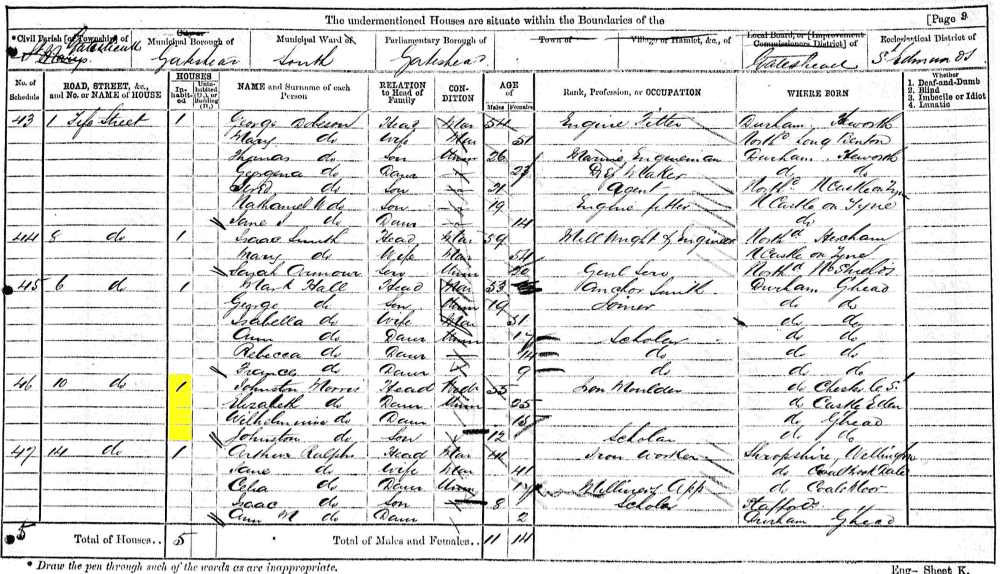 The undermentioned Houses are situate within the Boundaries of the [Page 9
*Civil Parish [or Township] of Municipal Borough of Municipal Ward of Parliamentary Borough of Town of Village or Hamlet, &c., of Local Board, or [Improvement Commissioners District] of Ecclesiastical District of
Gateshead Gateshead South Gateshead Gateshead
No. of Schedule ROAD, STREET, &c., and No. or NAME of HOUSE HOUSES Inhabited Uninhabited (U.), or Building (B.) NAME and Surname of each Person RELATION to Head of Family CONDITION AGE of Males Females Rank, Profession, or OCCUPATION WHERE BORN Whether 1. Deaf-and-Dumb 2. Blind 3. Imbecile or Idiot 4. Lunatic
43 1 Street 1 George Dobson Head Mar 54 Engine Fitter Durham Heworth
Mary do Wife Mar 51 North'd Long Benton
Thomas do Son Unm 26 Marine Engineman Durham Heworth
Georgena do Daur 23 do do
do Son 21 Agent
Nathaniel W do Son 19 Engine fitter N Castle on Tyne
Jane I do Daur 14 do
44 8 do 1 Isaac Smith Head Mar 59 Mill Wright & Engineer North'd Hexham
Mary do Wife Mar 54 N Castle on Tyne
Sarah Armour Serv Unm 20 Genl Serv North'd
45 6 do 1 Mark Hall Head Mar 53 Anchor Smith Durham Ghead
George do Son Unm 19 Joiner do do
Isabella do Wife Mar 51 do do
Ann do Daur Unm 17 Scholar do do
Rebecca do Daur 14 do do do
Francis do Daur 9 do do do
46 10 do 1 Johnston Morris Head 55 Iron Moulder do Chester le S.
Elizabeth do Daur Unm 25 do Castle Eden
Wilhelmina do Daur 15 do Ghead
Johnston do Son 12 Scholar do do
47 14 do 1 Arthur Ralphs Head Mar 41 Iron Worker Shropshire, Wellington
Jane do Wife Mar 41 do Coalbrookdale
Celia do Daur Unm 17 Millinery App do Coalmoor
Isaac do Son 8 Scholar Staffords
Ann M do Daur 2 Durham G'head
5 Total of Houses.. 5 Total of Males and Females.. 11 14
* Draw the pen through such of the words as are inappropriate. Eng- Sheet K.